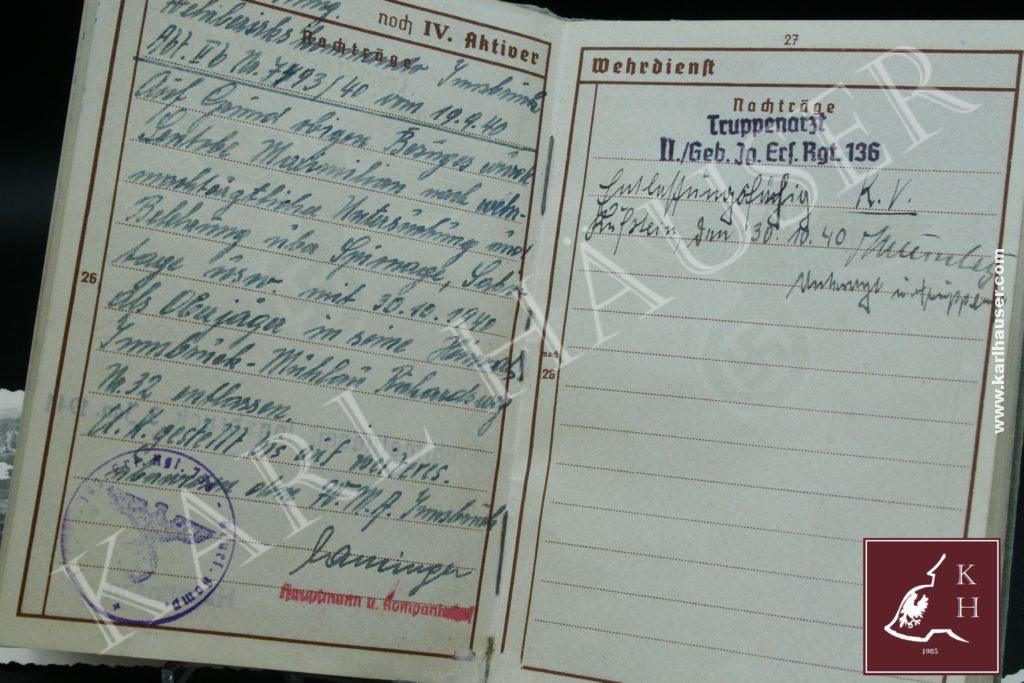 noch IV. Aktiver
Nachträge
Innsbruck
Abt. IIb Nr. 7493/40 vom 19.9.40
Auf Grund obigen Bezuges wurde
Maximilian nach
Untersuchung und
Belehrung über Spionage, Sabo-
tage usw. mit 30.10.1940
als Oberjäger in seine Heimat
Innsbruck-Mühlau
Nr. 32 entlassen.
U. K. gestellt bis auf weiteres.
W.M.A. Innsbruck
Hauptmann u. Kompanie
26
27
Wehrdienst
Nachträge
Truppenarzt
II./Geb. Jg. Ers. Rgt. 136
Entlassungsfähig K.V.
Kufstein den 30.10.40
Unterarzt
noch
26
KARL HAUSER
www.karlhauser.com
K
H
1985